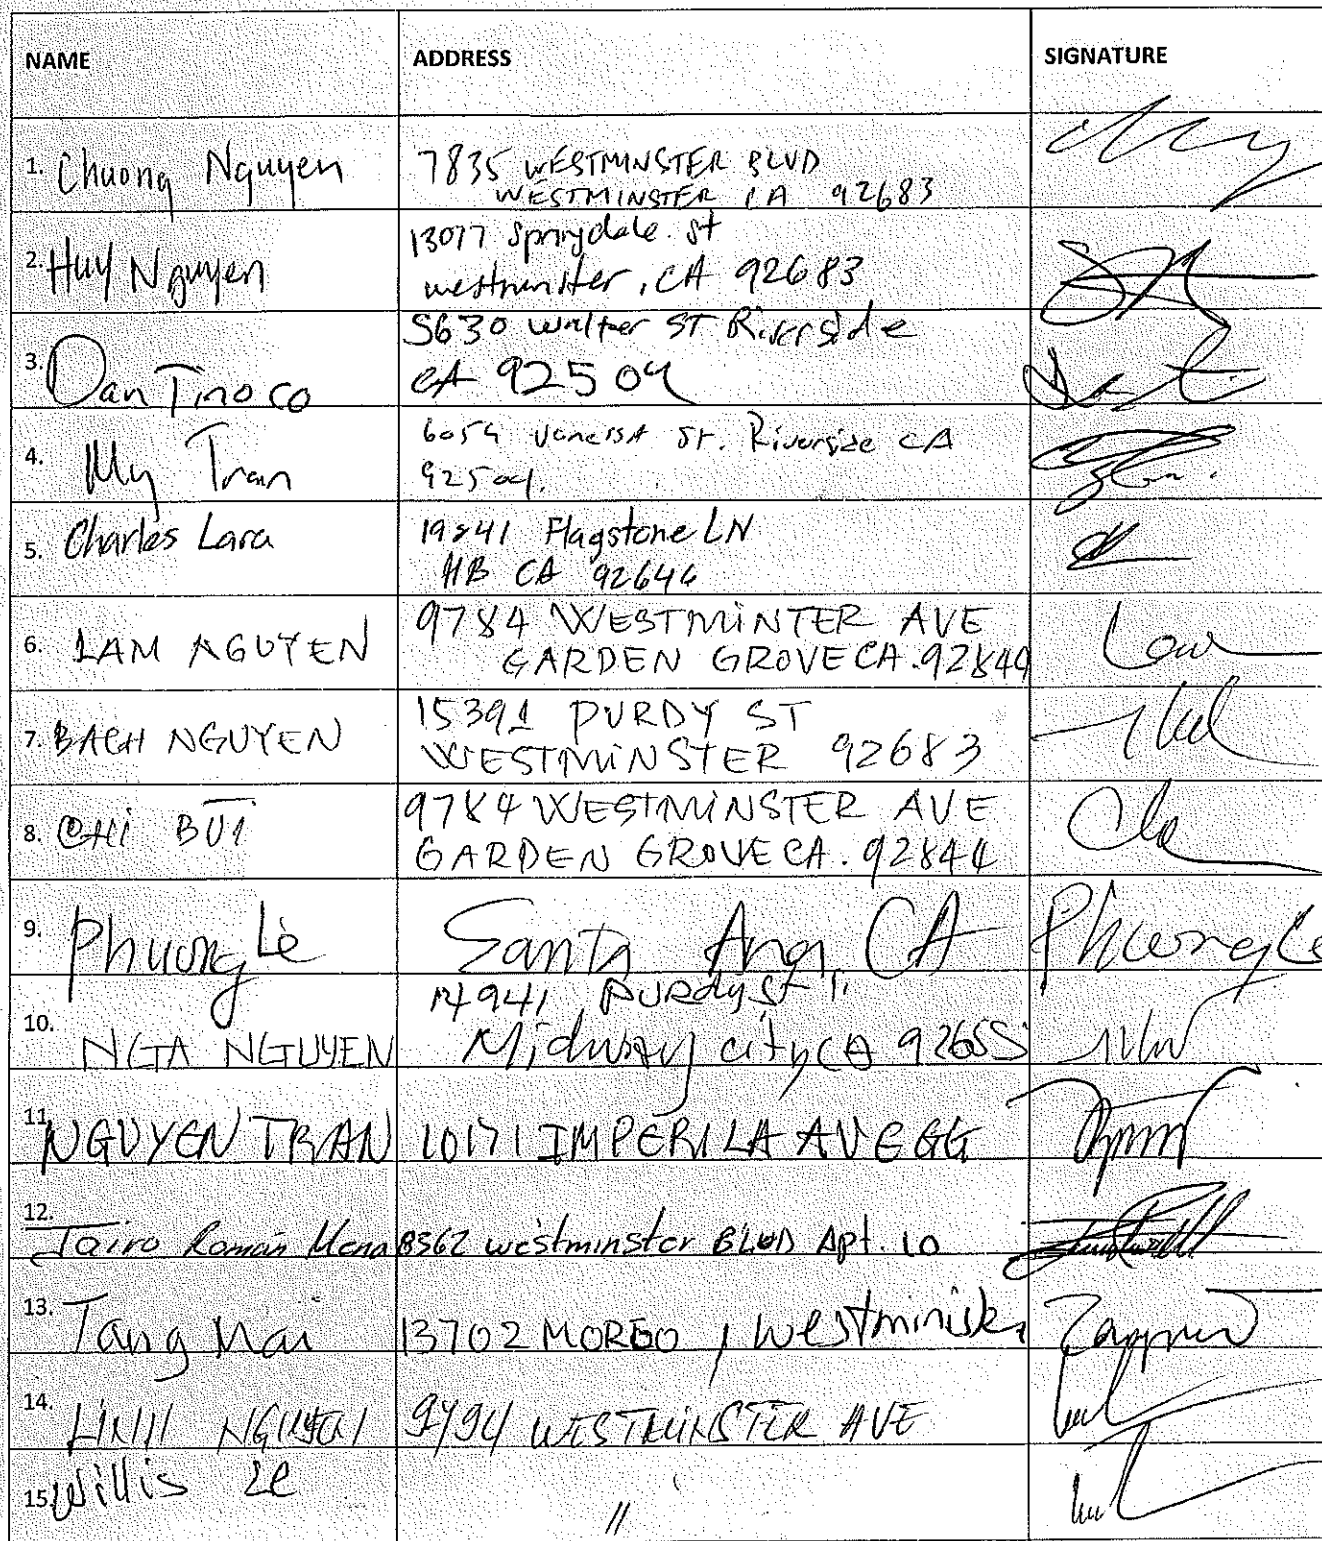 NAME ADDRESS SIGNATURE
1. Chuong Nguyen 7835 WESTMINSTER BLVD
WESTMINSTER CA 92683
2. Huy Nguyen 13077 Springdale st
westminster, CA 92683
3. Dan Tinoco 5630 walter ST Riverside
CA 92504
4. My Tran 6054 Vanessa St. Riverside CA
92504.
5. Charles Lara 19841 Flagstone LN
HB CA 92646
6. LAM NGUYEN 9784 WESTMINTER AVE
GARDEN GROVE CA. 92844
7. BACH NGUYEN 15391 PURDY ST
WESTMINSTER 92683
8. CHI BUI 9784 WESTMINSTER AVE
GARDEN GROVE CA. 92844
9. Phuong Le Santa Ana, CA Phuong Le
10. NGA NGUYEN 14941 PURDY St
Midway city CA 92655
11. NGUYEN TRAN 10171 IMPERILA AVE GG
12. Jairo Román Mena 8562 westminster BLVD Apt. 10
13. Tang Mai 13702 , Westminister
14. LINH NGUYEN WESTMINSTER AVE
15. Willis Le //